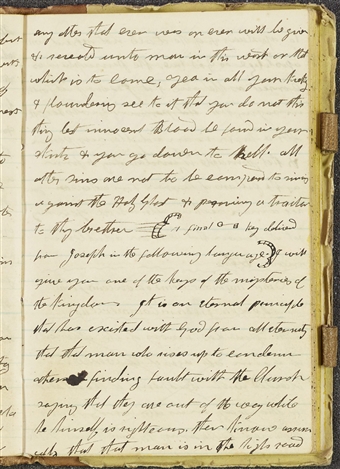 any other that ever was or ever will be given
& reveald unto man in this world or that
which is to come, yea in all your kicking
& floundering see to it that you do not this
thing lest innocent Blood be found in your
skirts & you go down to hell. all
other sins are not to be compard to sining
against the Holy Ghost & proving a traitor
to thy brethren
final key deliverd
from Joseph in the following language. I will
give you one of the keys of the mysteries of
the kingdom. It is an eternal principle
that has existed with God from all eternity
that that man who rises up to condemn
others finding fault with the Church
saying that they are out of the way while
he himself is righteous, then know assur
edly that that man is in the high road